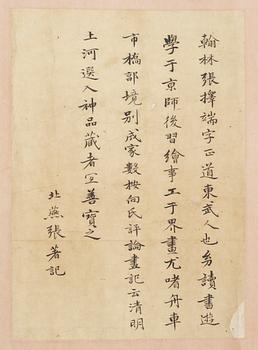 翰林張擇端字正道東武人也幼讀書遊
學于京師後習繪事工于界畫尤嗜舟車
市橋郭境別成家數按向氏評論畫記云清明
上河選入神品藏者宜善寶之
北燕張著記